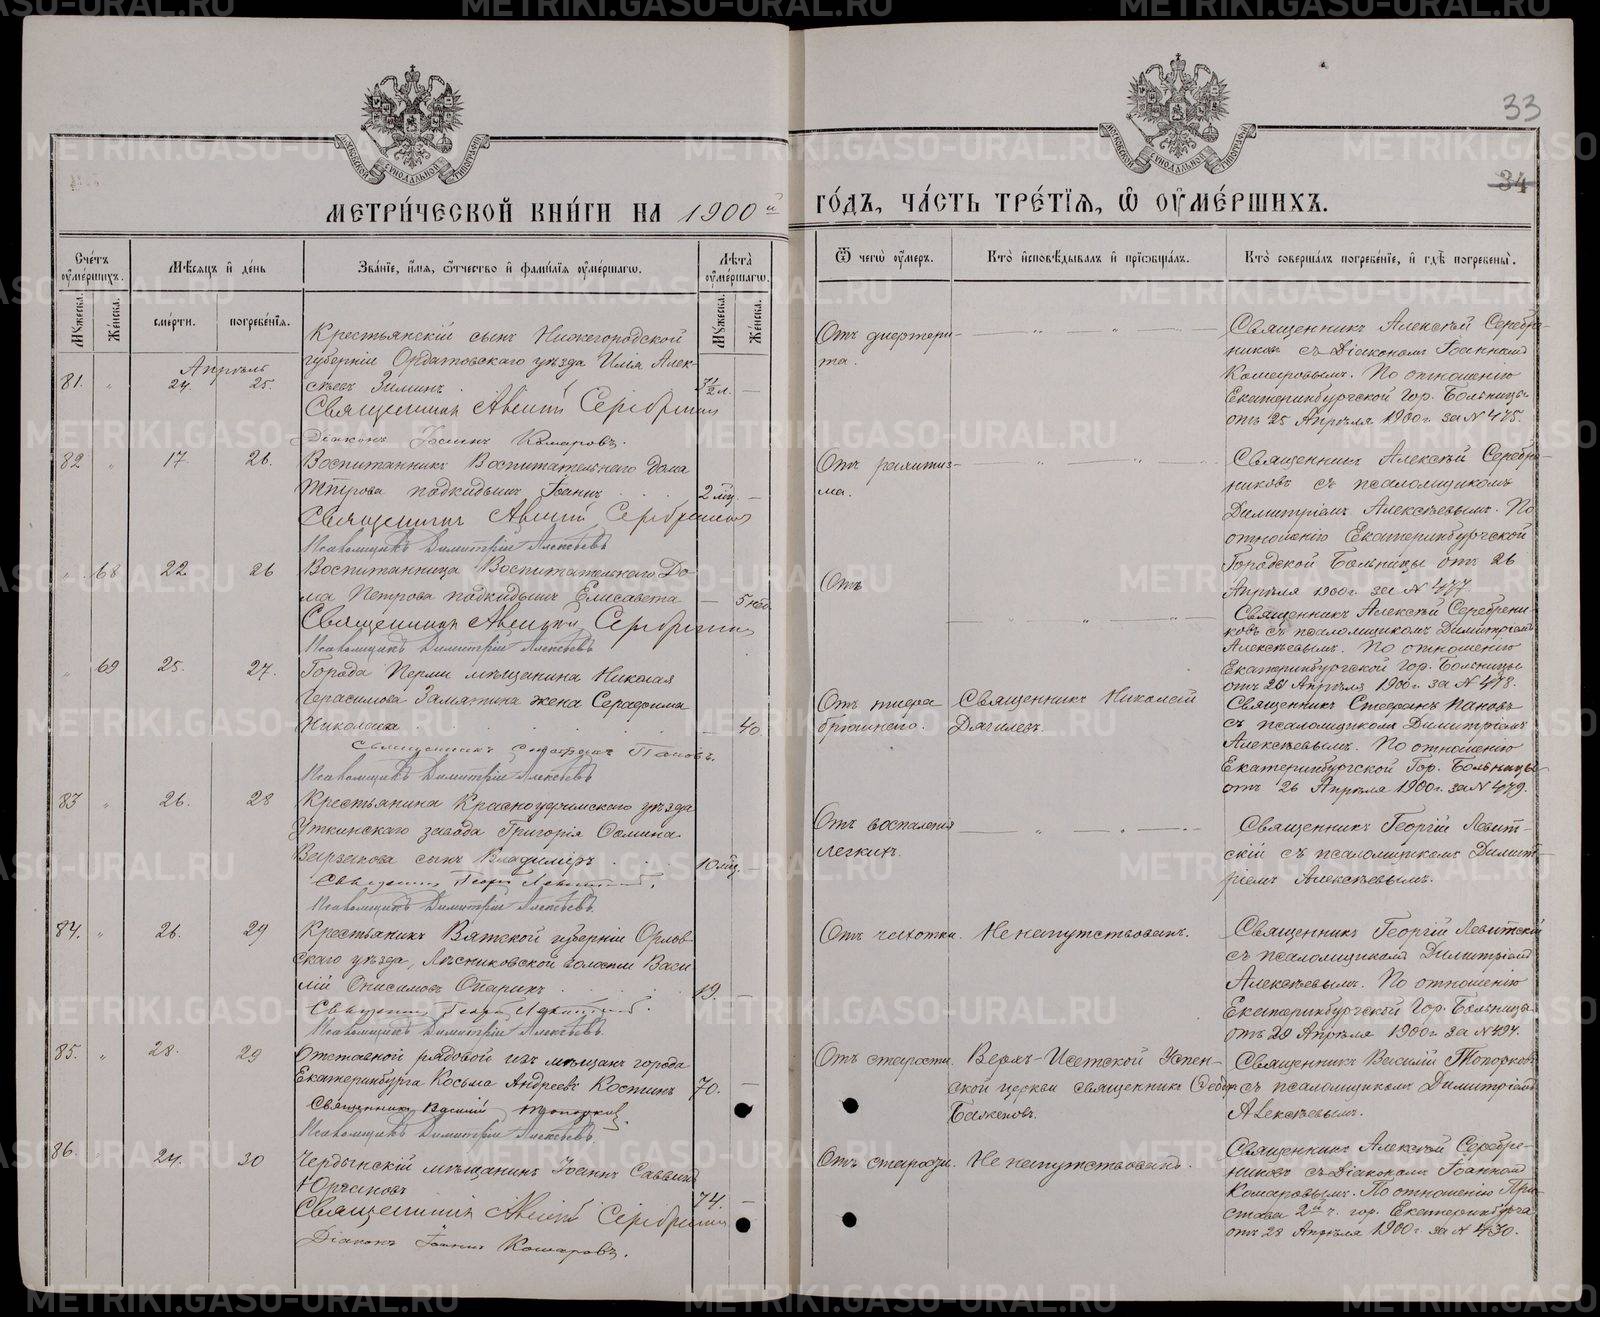 33
34
МЕТРИ́ЧЕСКОЙ КНИ́ГИ НА 1900й
ГО́ДЪ, ЧА́СТЬ ТРЕ́ТІѦ, Ѡ ОУМЕ́РШИХЪ.
Сче́тъ оумѐршихъ.
Мѣ́сяцъ и де́нь
Зва́ніе, и́мя, ѻ́тчество и фами́лія оуме́ршагѡ.
Лѣ́та оуме́ршагѡ.
Мужеска.
Женска.
сме́рти.
погребе́нія.
Мужеска.
Женска.
Ѿ чегѡ̀ оу́меръ.
Кто̀ и҆сповѣ́дывалъ и҆ прїѡбща́лъ.
Кто̀ соверша́лъ погребе́нїе, и҆ гдѣ̀ погребены̀.
Апрѣль
81.
24.
25.
Крестьянскій сынъ Нижегородской
губерніи Ардатовскаго уѣзда Илія Алек-
сѣевъ Зиминъ.
Священникъ Алексій Серебренниковъ
Діаконъ Іоаннъ Комаровъ.
Отъ дифтери-
та.
Священникъ Алексѣй Серебре-
никовъ съ Діакономъ Іоанномъ
Комаровымъ. По отношенію
Екатеринбургской Гор. Больницы
отъ 25 Апрѣля 1900 г. за № 475.
82
17
26.
Воспитанникъ Воспитательнаго Дома
Петрова подкидышъ Іоаннъ
2 мѣс.
Священникъ Алексій Серебренниковъ
Псаломщикъ Димитрій Алексѣевъ
Отъ
ма.
Священникъ Алексѣй Серебре-
никовъ съ псаломщикомъ
Димитріемъ Алексѣевымъ. По
отношенію Екатеринбургской
Городской Больницы отъ 26
Апрѣля 1900 г. за № 477
68
22
26
Воспитанница Воспитательнаго До-
ма Петрова подкидышъ Елисавета
5 нед.
Священникъ Алексій Серебренниковъ
Псаломщикъ Димитрій Алексѣевъ
Отъ
Священникъ Алексѣй Серебрени-
ковъ съ псаломщикомъ Димитріемъ
Алексѣевымъ. По отношенію
Екатеринбургской Гор. Больницы
отъ 26 Апрѣля 1900 г. за № 478.
69
25.
27.
Города Перми мѣщанина Николая
Герасимова Замятина жена Серафима
Николаева
40
Священникъ Стефанъ Пановъ.
Псаломщикъ Димитрій Алексѣевъ
Отъ тифа
брюшного.
Священникъ Николай
Дягилевъ.
Священникъ Стефанъ Пановъ
съ псаломщикомъ Димитріемъ
Алексѣевымъ. По отношенію
Екатеринбургской Гор. Больницы
отъ 26 Апрѣля 1900 г. за № 479.
83
26.
28
Крестьянина Красноуфимскаго уѣзда
Уткинскаго завода Григорія
сынъ Владиміръ
10 мѣс.
Священникъ Георгій Левитскій.
Псаломщикъ Димитрій Алексѣевъ.
Отъ воспаленія
легкихъ.
Священникъ Георгій Левит-
скій съ псаломщикомъ Димит-
ріемъ Алексѣевымъ.
84.
26.
29
Крестьянинъ Вятской губерніи Орлов-
скаго уѣзда, волости Васи-
лій Онисимовъ Опаринъ
19.
Священникъ Георгій Левитскій.
Псаломщикъ Димитрій Алексѣевъ.
Отъ чахотки.
Не напутствованъ.
Священникъ Георгій Левитскій
съ псаломщикомъ Димитріемъ
Алексѣевымъ. По отношенію
Екатеринбургской Гор. Больницы
отъ 29 Апрѣля 1900 г. за № 494.
85.
28.
29
Отставной рядовой изъ мѣщанъ города
Екатеринбурга Косьма Андреевъ Костинъ
70.
Священникъ Василій Топорковъ.
Псаломщикъ Димитрій Алексѣевъ.
Отъ старости.
Верхъ-Исетской Успен-
ской церкви священникъ Ѳедоръ
Баженовъ.
Священникъ Василій Топорковъ
съ псаломщикомъ Димитріемъ
Алексѣевымъ.
86.
24.
30
Чердынскій мѣщанинъ Іоаннъ Саввинъ
Юргановъ
74.
Священникъ Алексій Серебренниковъ
Діаконъ Іоаннъ Комаровъ.
Отъ старости.
Не напутствованъ.
Священникъ Алексѣй Серебре-
никовъ съ Діакономъ Іоанномъ
Комаровымъ. По отношенію При-
става 2й ч. гор. Екатеринбурга
отъ 28 Апрѣля 1900 г. за № 430.
METRIKI.GASO-URAL.RU